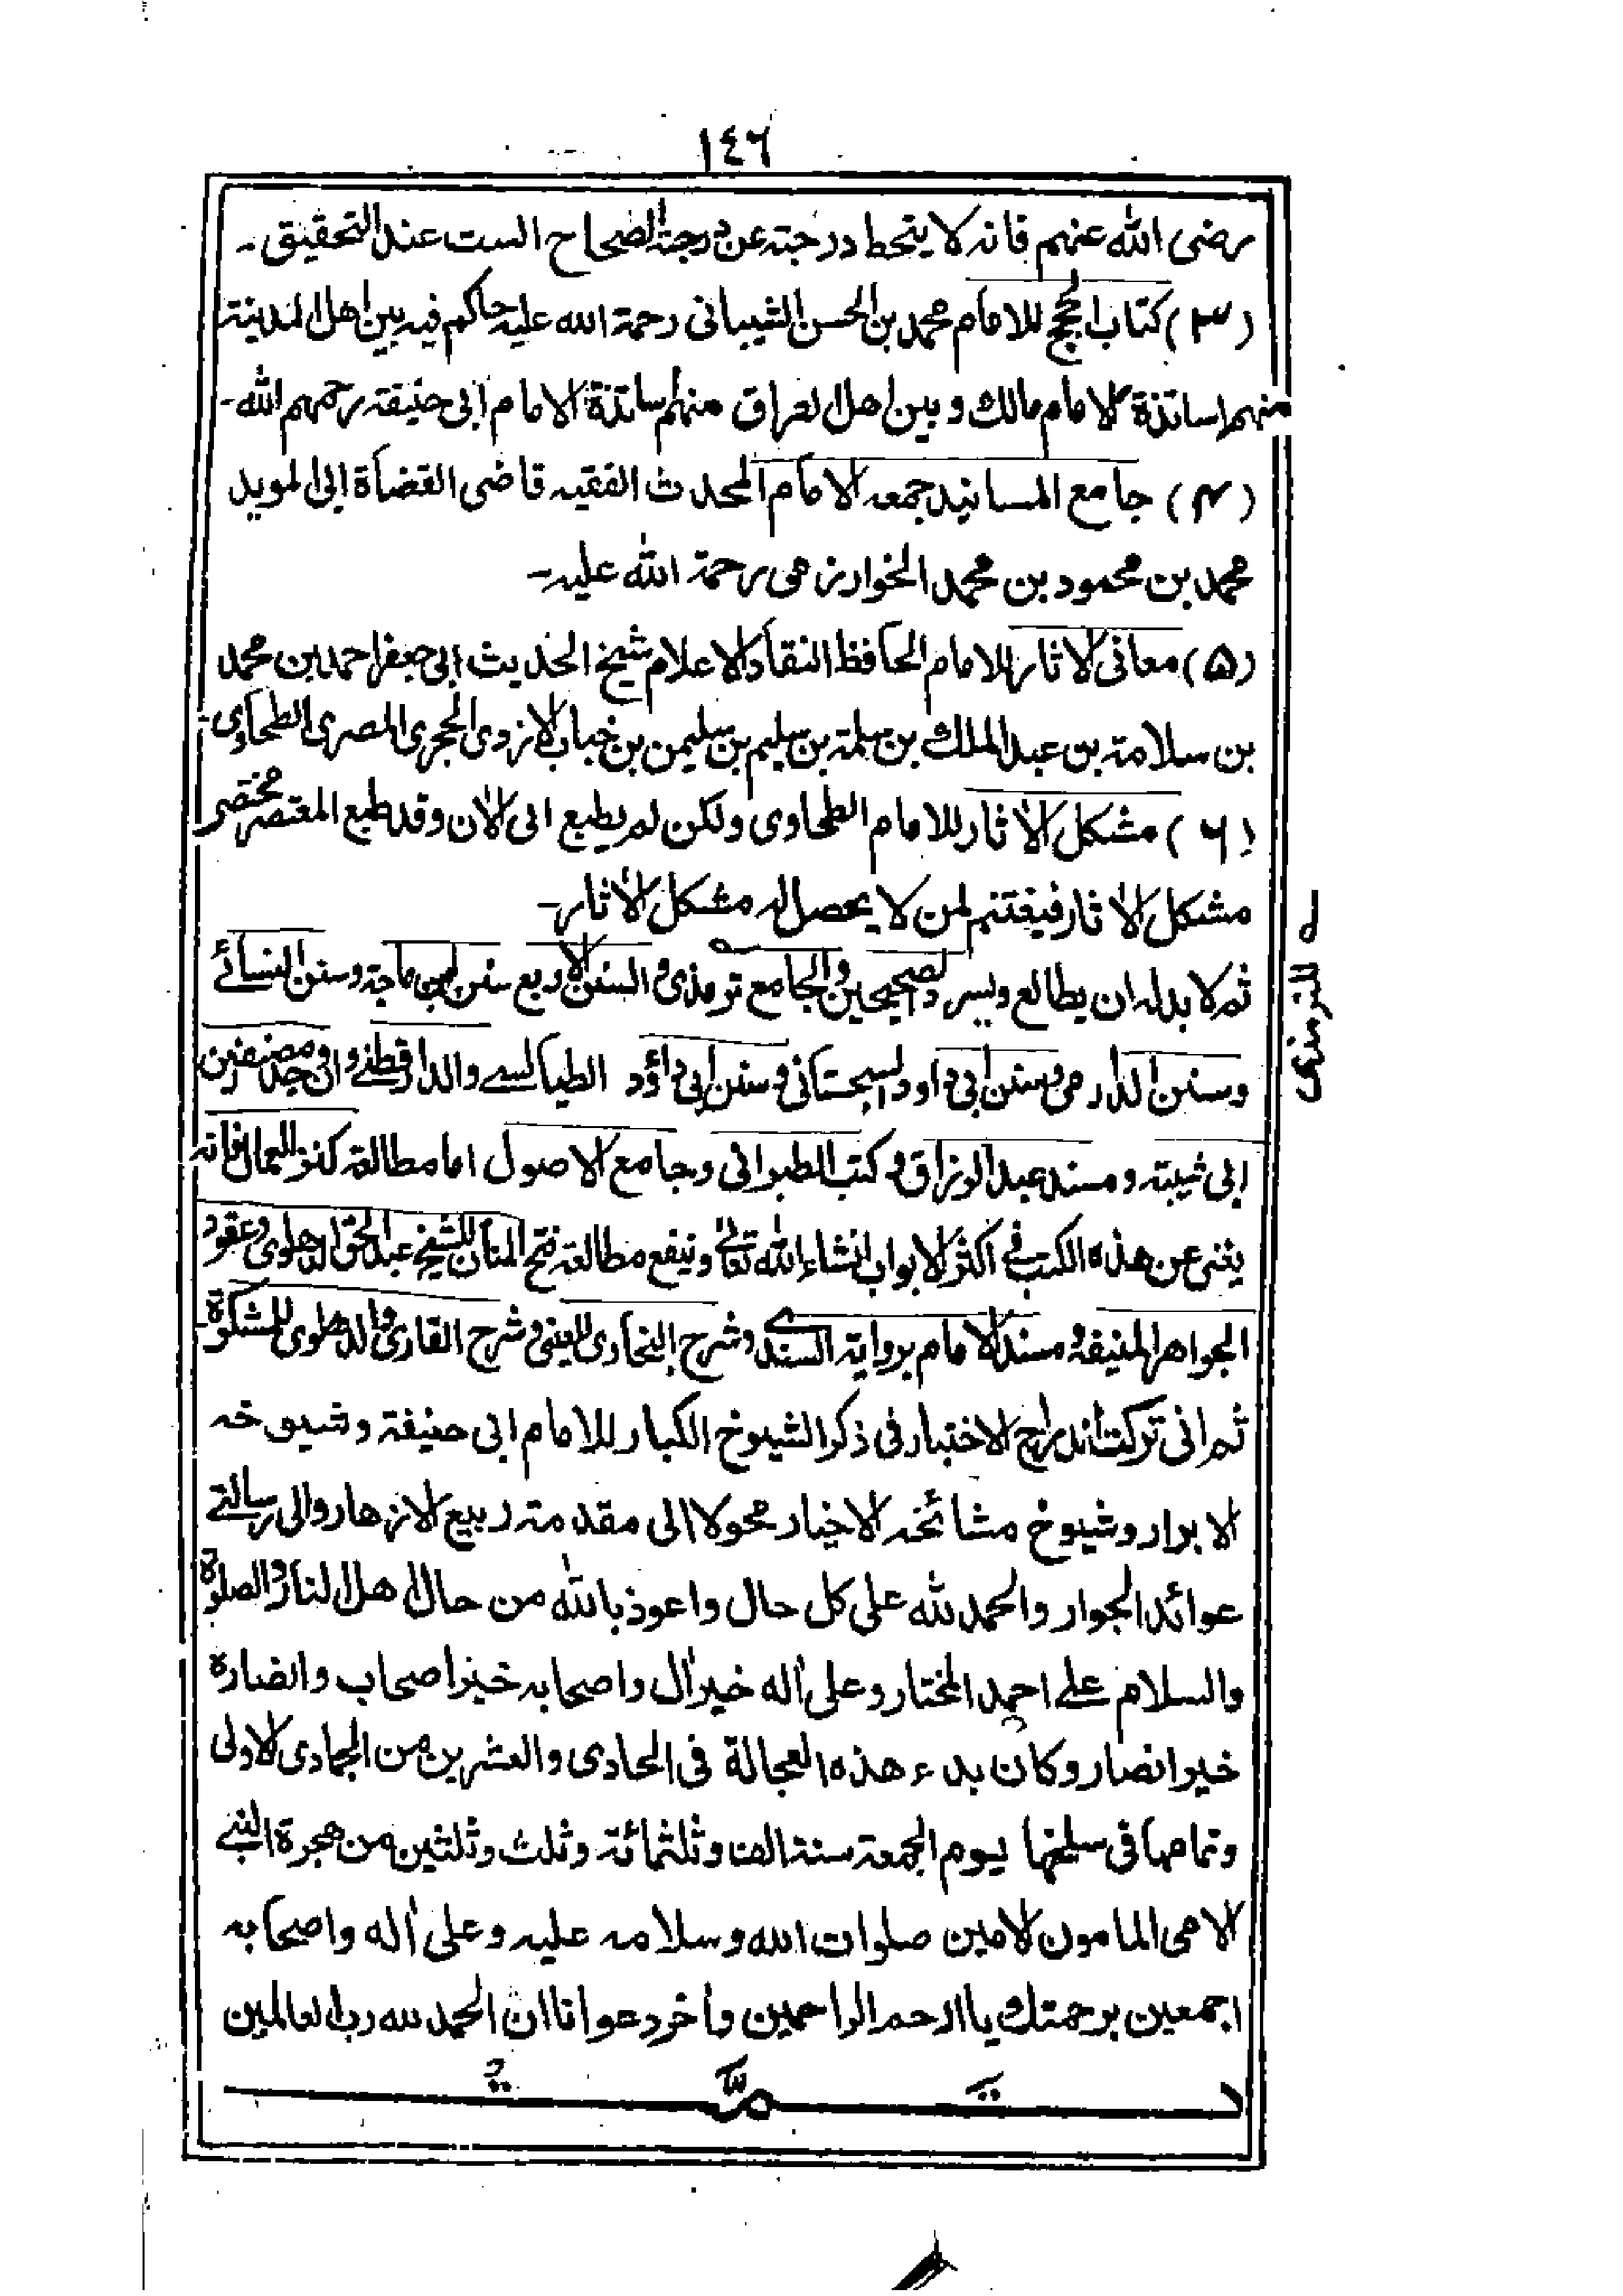 ١٤٦
رضى الله عنهم فانه لا ينحط درجته عن درجة الصحاح الست عند التحقيق۔
(٣) كتاب الحجج للامام محمد بن الحسن الشيبانى رحمة الله عليه حاكم فيه بين اهل المدينة
منهم اساتذة الامام مالك وبين اهل العراق منهم اساتذة الامام ابى حنيفة رحمهم الله۔
(٤) جامع المسانيد جمعه الامام المحدث الفقيه قاضى القضاة ابى المويد
محمد بن محمود بن محمد الخوارزمى رحمة الله عليه۔
(٥) معانى الاثار للامام الحافظ النقاد الاعلام شيخ الحديث ابى جعفر احمد بن محمد
بن سلامة بن عبد الملك بن سلمة بن سليم بن سليمن بن خباب الازدى الحجرى المصرى الطحاوى
(٦) مشكل الاثار للامام الطحاوى ولكن لم يطبع الى الان وقد طبع المعتصر مختصر
مشكل الاثار فيغتنم لمن لا يحصل له مشكل الاثار۔
ثم لا بد له ان يطالع ويسرد الصحيحين والجامع ترمذى والسنن الاربع سنن ابن ماجة وسنن النسائے
له للترمذى
وسنن الدارمى وسنن ابى داود السجستانى وسنن ابى داؤد الطيالسے والدارقطنے وان وجد مصنف ابن
ابى شيبة ومسند عبد الرزاق وكتب الطبرانى وجامع الاصول اما مطالعة كنز العمال فانه
يغنى عن هذه الكتب فے اكثر الابواب انشاء الله تعالىٰ وينفع مطالعة فتح المنان للشيخ عبد الحق الدهلوى وعقود
الجواهر المنيفة ومسند الامام برواية السندے وشرح البخارى للعينى وشرح القارى والدهلوى للمشكوة
ثم انى تركت اندراج الاختبار فى ذكر الشيوخ الكبار للامام ابى حنيفة وشيوخه
الابرار وشيوخ مشائخه الاخيار محولا الى مقدمة ربيع الازهار والى رسالتے
عوائد الجوار والحمد لله على كل حال واعوذ بالله من حال اهل النار والصلوة
والسلام علے احمد المختار وعلى اله خير ال واصحابه خير اصحاب وانصاره
خير انصار وكان بدء هذه العجالة فى الحادى والعشرين من الجمادى الاولى
وتمامها فى سلخها يوم الجمعة سنة الف وثلثمائة وثلث وثلثين من هجرة النبے
الامى المامون الامين صلوات الله وسلامه عليه وعلى اله واصحابه
اجمعين برحمتك يا ارحم الراحمين واخر دعوانا ان الحمد لله رب العالمين
تمت